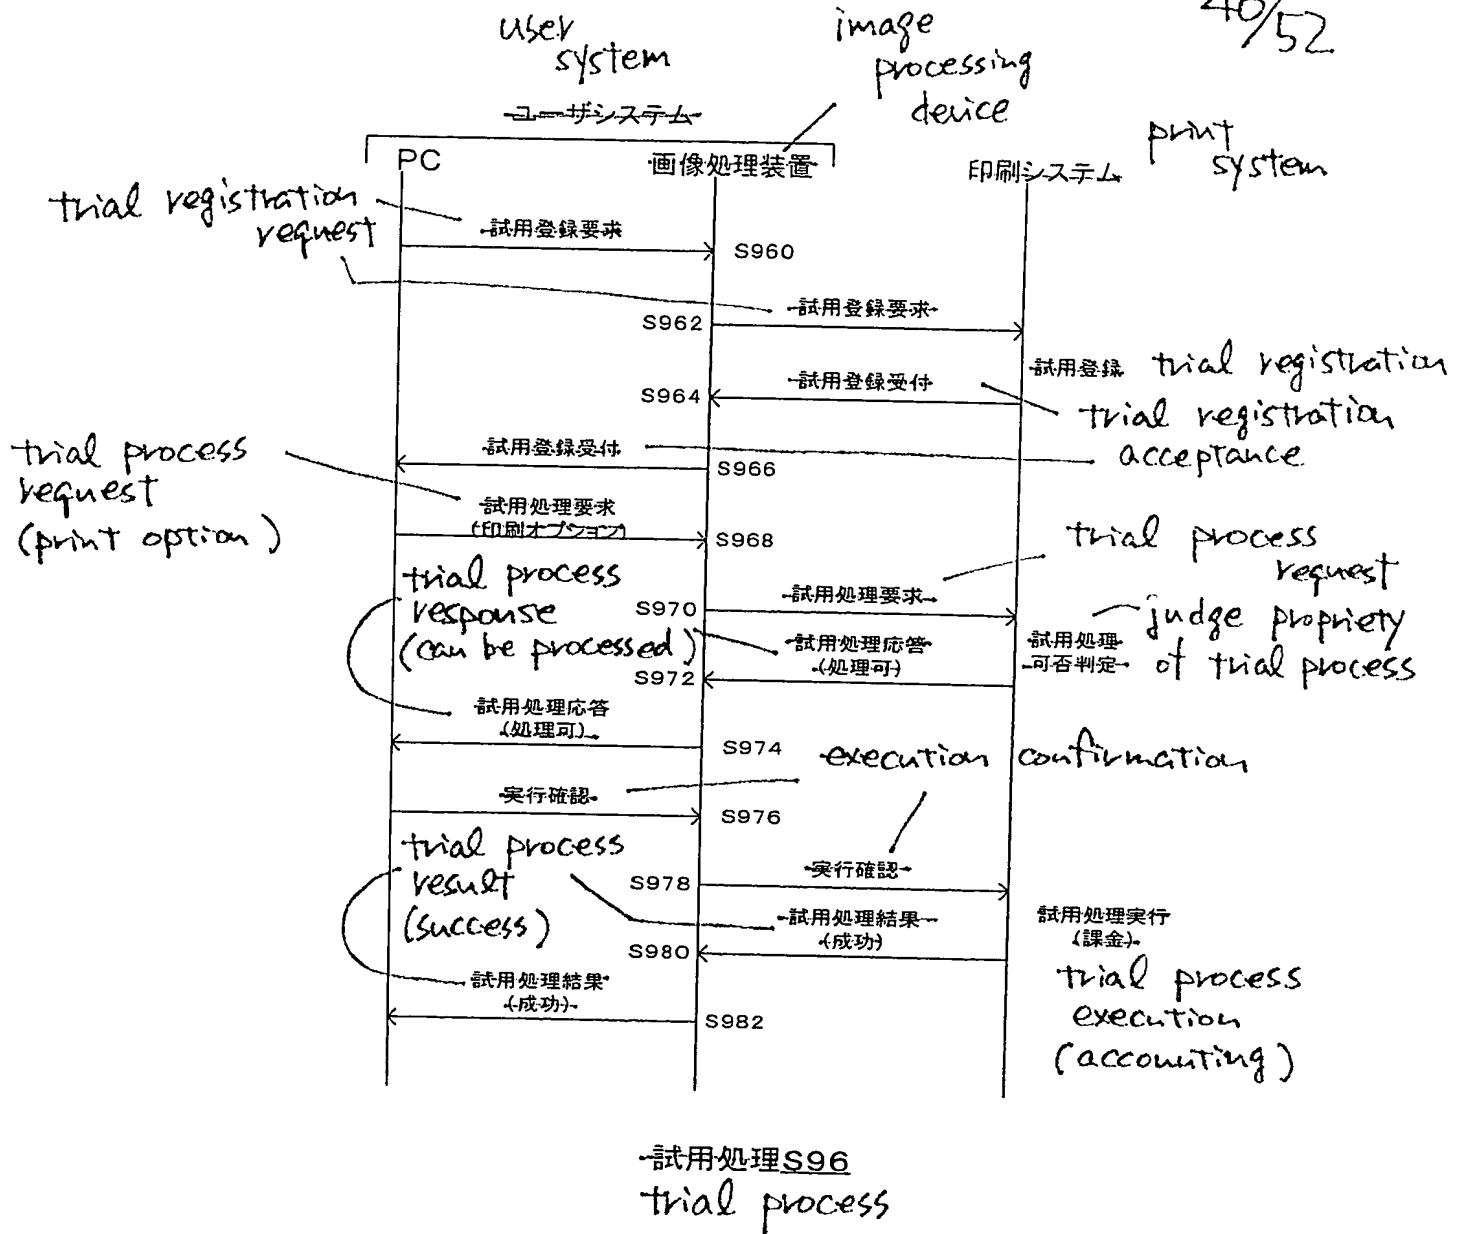 40/52
user
system
image
processing
device
ユーザシステム
print
system
PC
画像処理装置
印刷システム
trial registration
request
試用登録要求
S960
試用登録要求
S962
試用登録 trial registration
試用登録受付
S964
trial registration
acceptance
試用登録受付
S966
trial process
request
(print option)
試用処理要求
(印刷オプション)
S968
trial process
request
trial process
response
(can be processed)
試用処理要求
S970
judge propriety
of trial process
試用処理
可否判定
試用処理応答
(処理可)
S972
試用処理応答
(処理可)
S974
execution confirmation
実行確認
S976
trial process
result
(success)
実行確認
S978
試用処理結果
(成功)
S980
試用処理実行
(課金)
trial process
execution
(accounting)
試用処理結果
(成功)
S982
試用処理S96
trial process